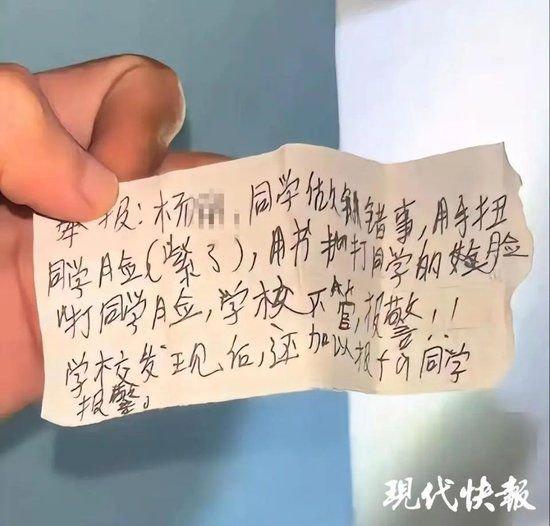 举报：杨，同学做错事，用手扭
同学脸(紫了)，用书打同学的脸
打同学脸，学校不管，报警！！
学校发现后，还加以报同学
报警。
现代快报